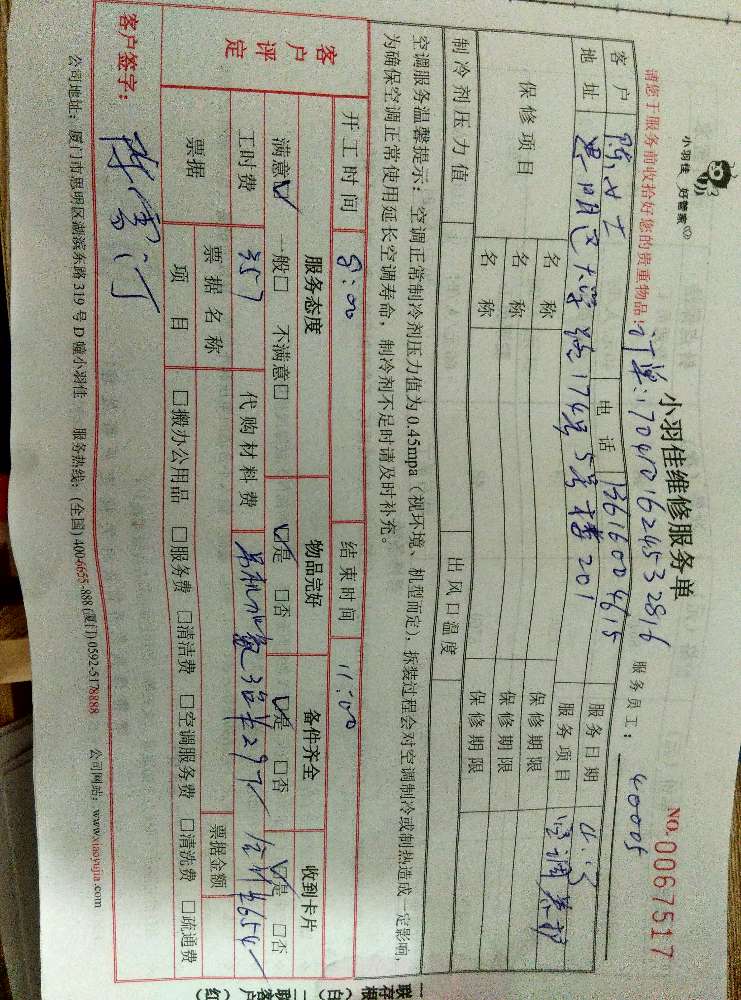 小羽佳 好管家
小羽佳维修服务单
NO. 0067517
请您于服务前收拾好您的贵重物品!
订单:1704101624532816
服务员工: 40005
客户 陈女士 电话 13616004615 服务日期
地址 思明区大学路174号5号楼201 服务项目 空调养护
保修项目 名称 保修期限
名称 保修期限
名称 保修期限
制冷剂压力值 出风口温度
空调服务温馨提示:空调正常制冷剂压力值为0.45mpa(视环境、机型而定),拆装过程会对空调制冷或制热造成一定影响,
为确保空调正常使用延长空调寿命,制冷剂不足时请及时补充。
开工时间 8:00 结束时间 11:00
客户评定 服务态度 物品完好 备件齐全 收到卡片
满意☑ 一般□ 不满意□ ☑是 □否 ☑是 □否 ☑是 □否
工时费 357 代购材料费 3台¥297 合计¥654
票据 票据名称 票据金额
项目 □搬办公用品 □服务费 □清洁费 □空调服务费 □清洗费 □疏通费
客户签字:
公司地址:厦门市思明区湖滨东路319号D幢小羽佳 服务热线:(全国)400-6655-888(厦门)0592-5178888 公司网站:www.xiaoyujia.com
一联存根(白)
二联客户(红)